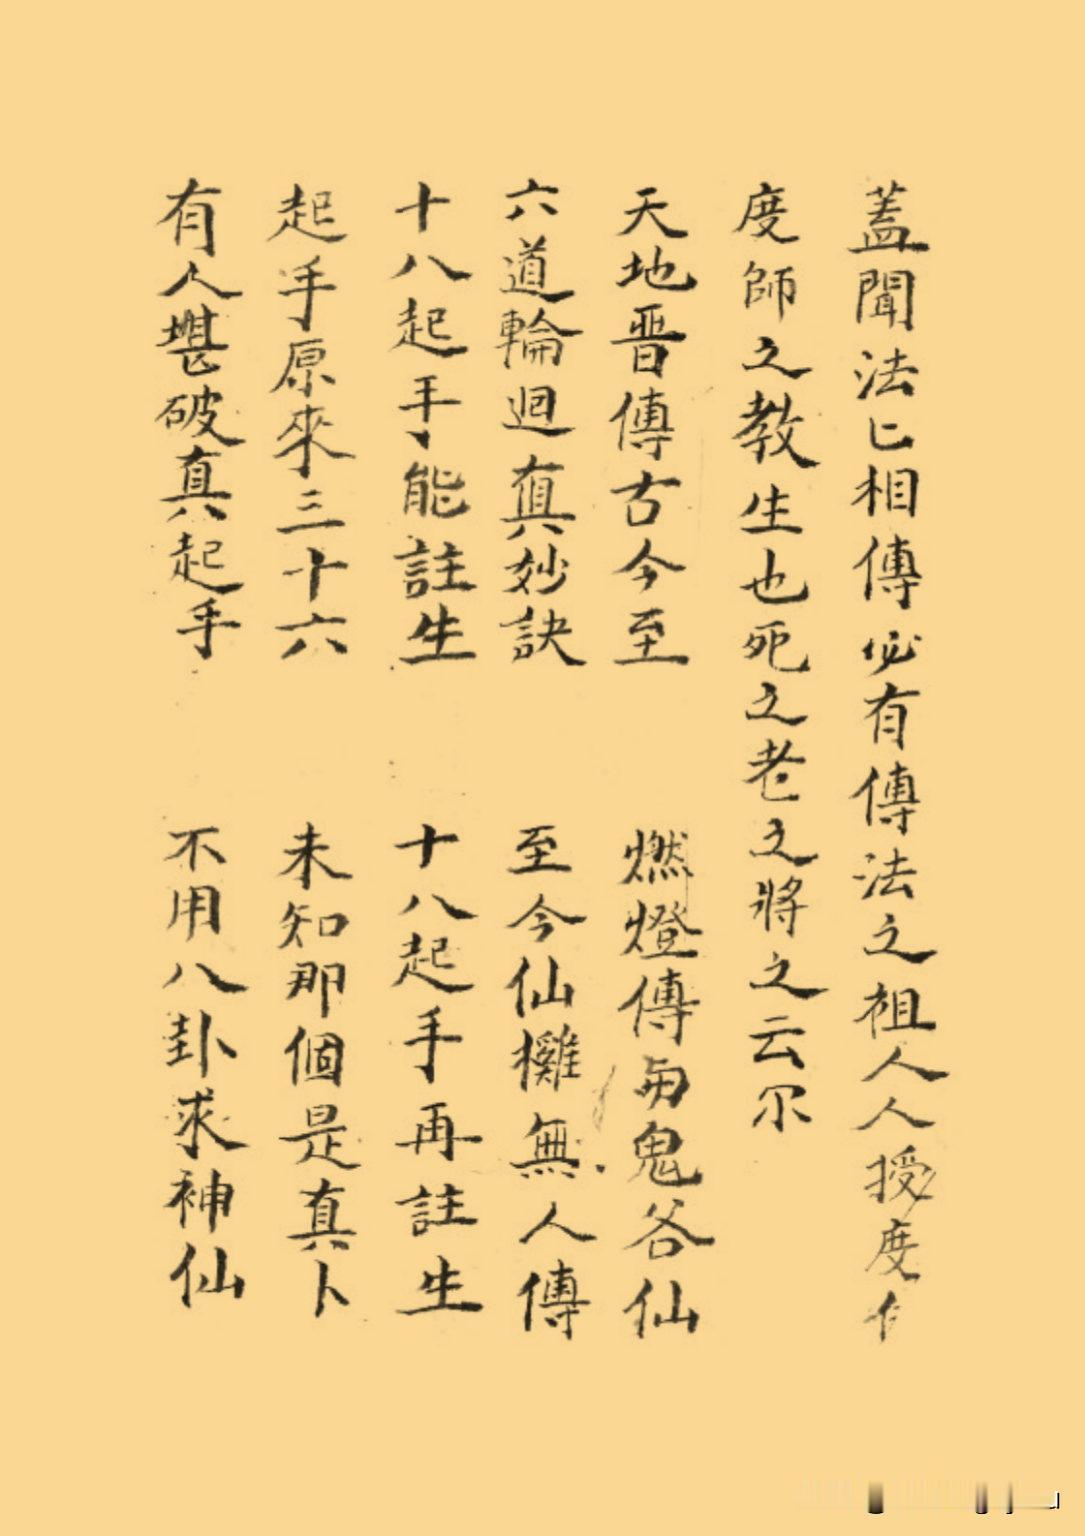 蓋聞法匕相傳必有傳法之祖人人授度
度師之教生也死之老之將之云尔
天地晋傳古今至 燃燈傳与鬼谷仙
六道輪迴真妙訣 至今仙難無人傳
十八起手能註生 十八起手再註生
起手原來三十六 未知那個是真卜
有人堪破真起手 不用八卦求神仙